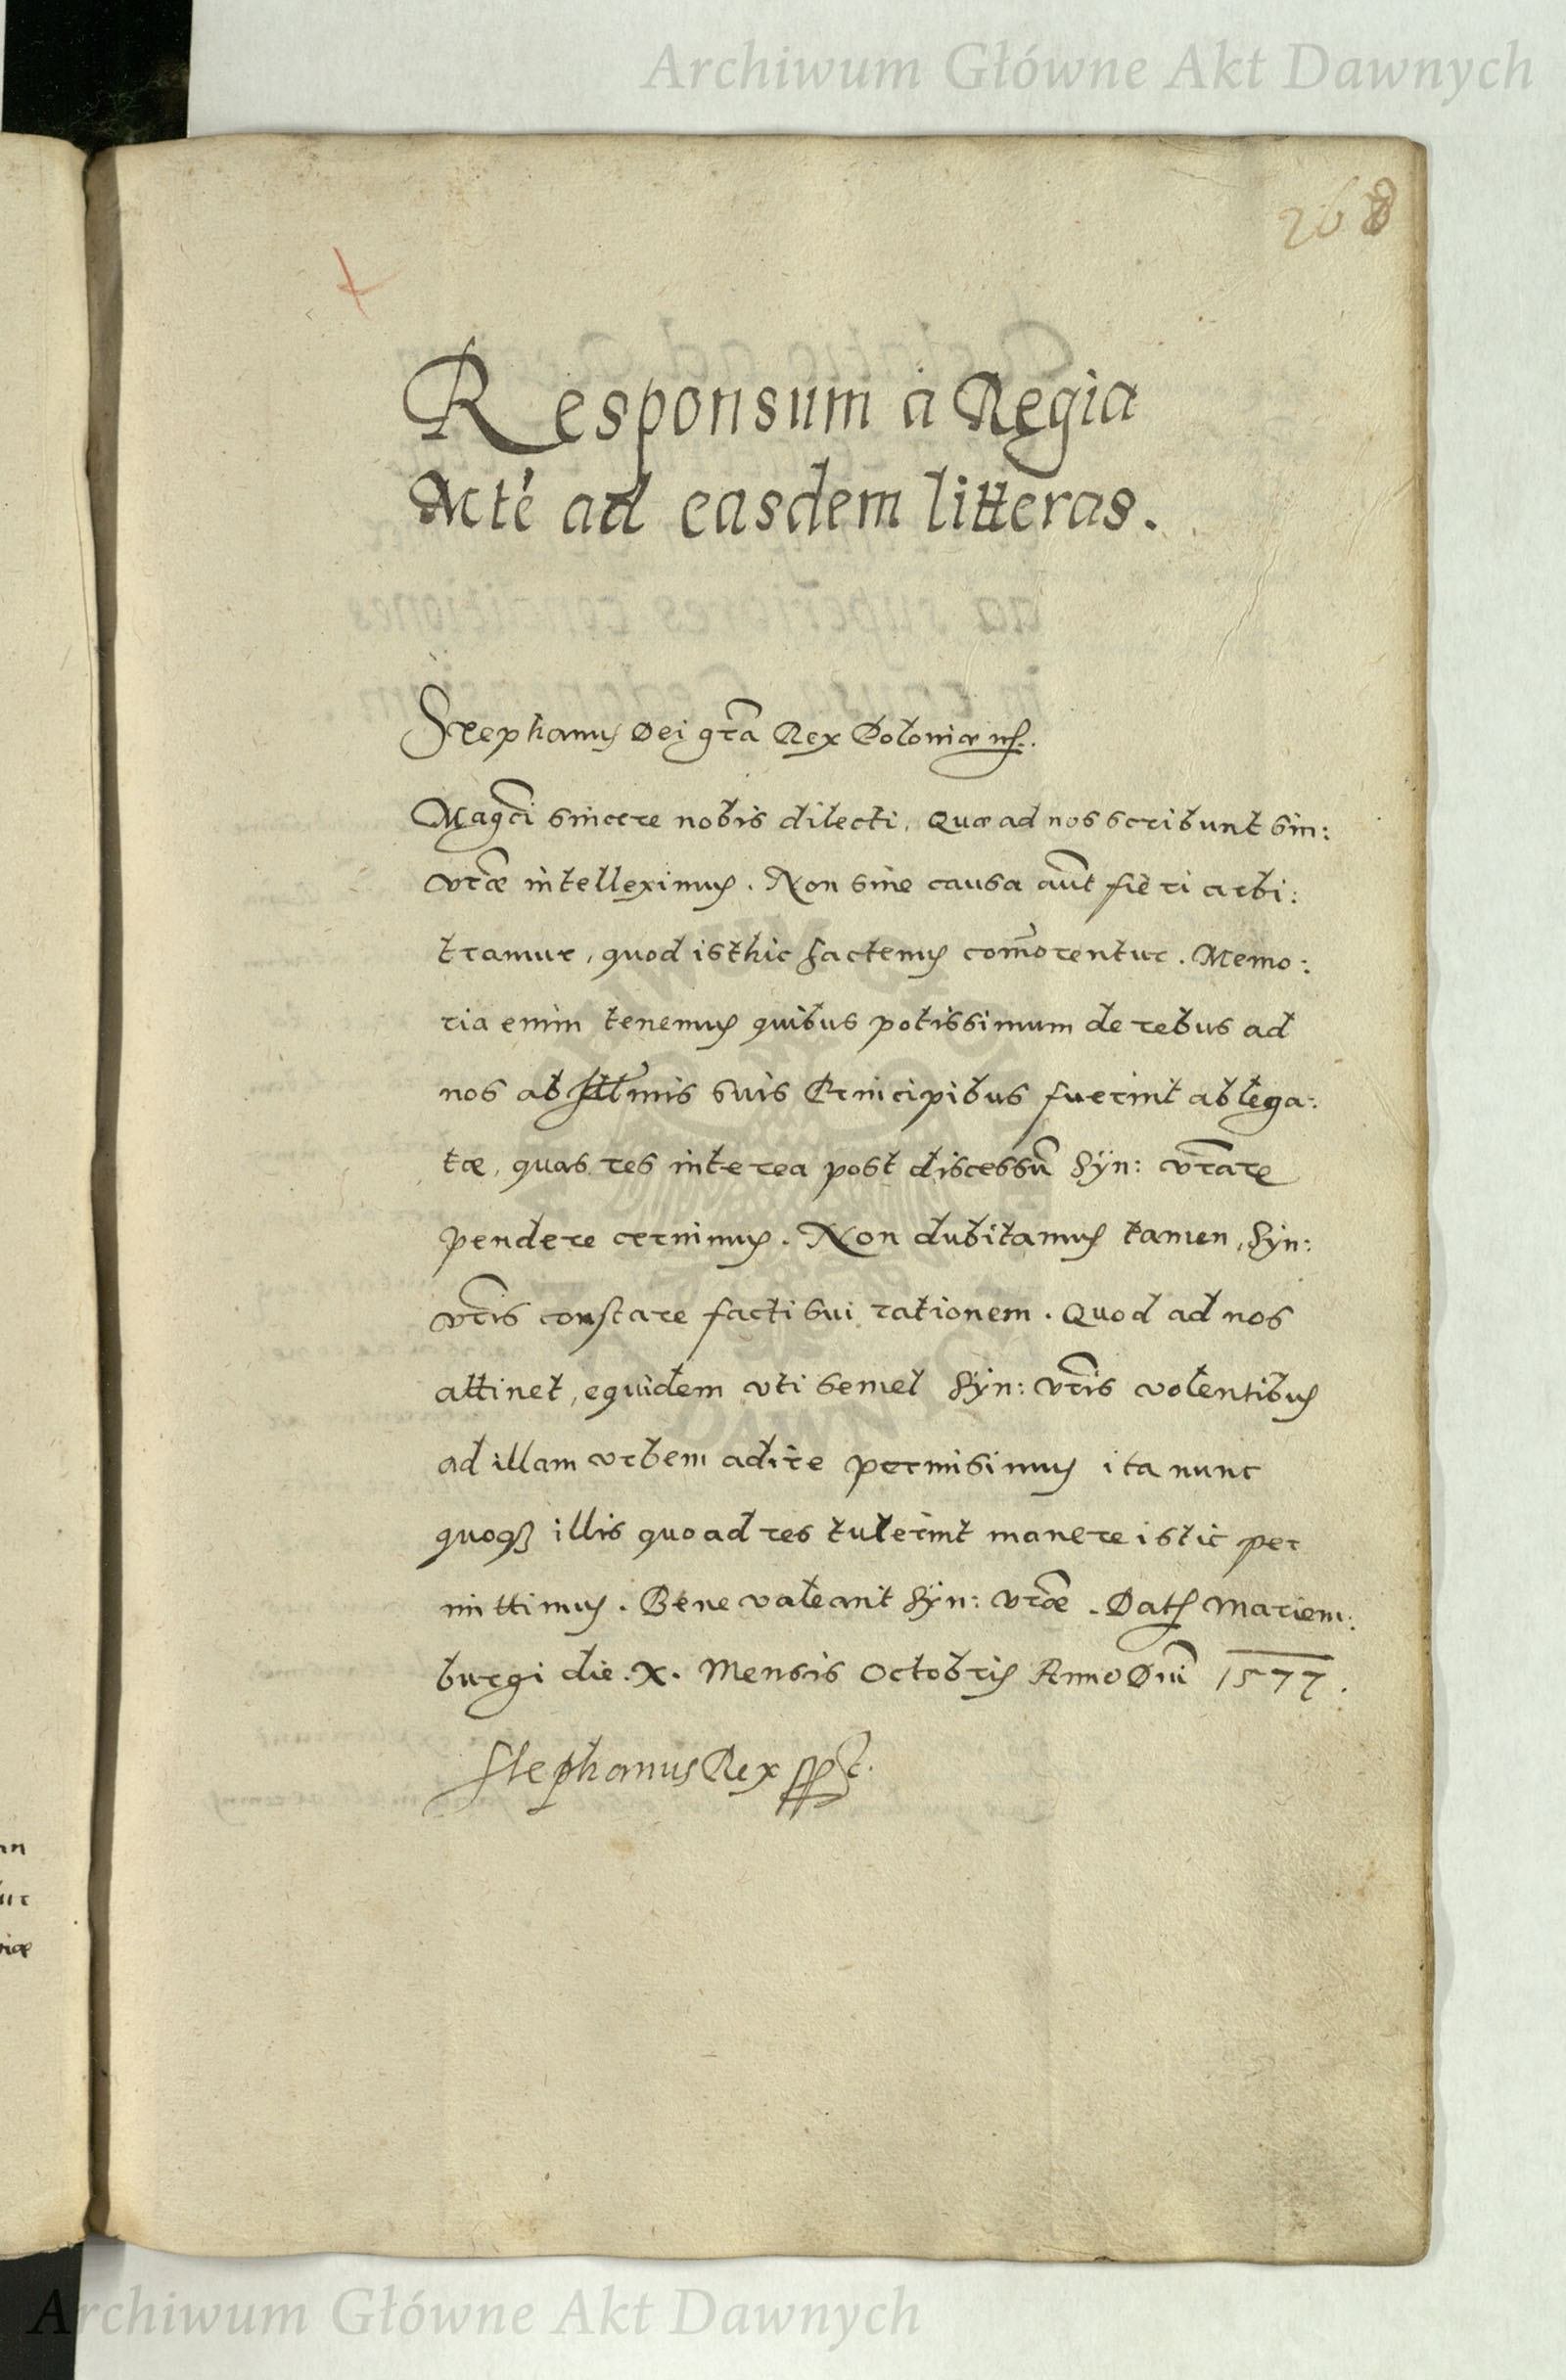 Archiwum Główne Akt Dawnych
268
Responsum à Regia
Mte ad easdem litteras.
Stephanus Dei gra Rex Poloniæ
Magci sincere nobis dilecti, Quæ ad nos scribunt Sin:
vræ intelleximus. Non sine causa aut fieri arbi:
tramur, quod isthic hactenus comorentur. Memo:
ria enim tenemus quibus potissimum de rebus ad
nos ab Illmis suis Principibus fuerint ablega:
tæ, quas res interea post discessu Syn: vrare
pendere cernimus. Non dubitamus tamen, Syn:
vris constare facti sui rationem. Quod ad nos
attinet, equidem vti semel Syn: vris volentibus
ad illam vrbem adire permisimus ita nunc
quoq3 illis quoad res tulerint manere istic per
mittimus. Bene valeant Syn: vræ. Dat Mariem:
burgi die. X. Mensis Octobris Anno Dni 1577.
Stephanus Rex sspt.
Archiwum Główne Akt Dawnych